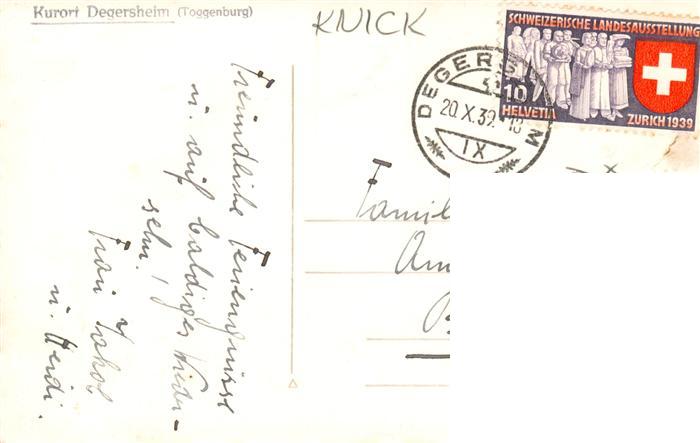 Kurort Degersheim (Toggenburg)
KNICK
SCHWEIZERISCHE LANDESAUSSTELLUNG
10
HELVETIA
ZÜRICH 1939
DEGERSHEIM
20.X.39.-18
IX
Freundliche Feriengrüsse
u. auf baldiges Wieder-
sehn!
Frau
u. Heidi.
Famil
Am